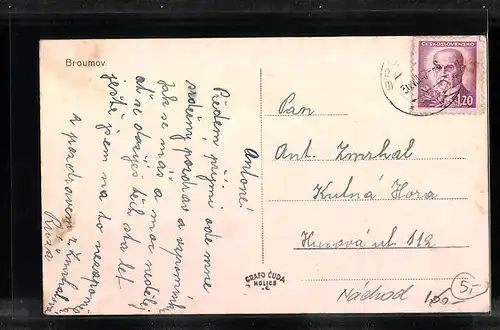 Broumov
Antone!
Předem přijmi ode mne
srdečný pozdrav a vzpomínku
Jak se máš a moc nedělej
ať se dožiješ těch sta let
ještě jsem na to nezapomněl
A pozdravem z
Růža
ČESKOSLOVENSKO
1.20
Pan
Ant. Zmrhal
Kutná Hora
Husova ul. 112
GRAFO ČUDA
HOLICE
Náchod
5,-